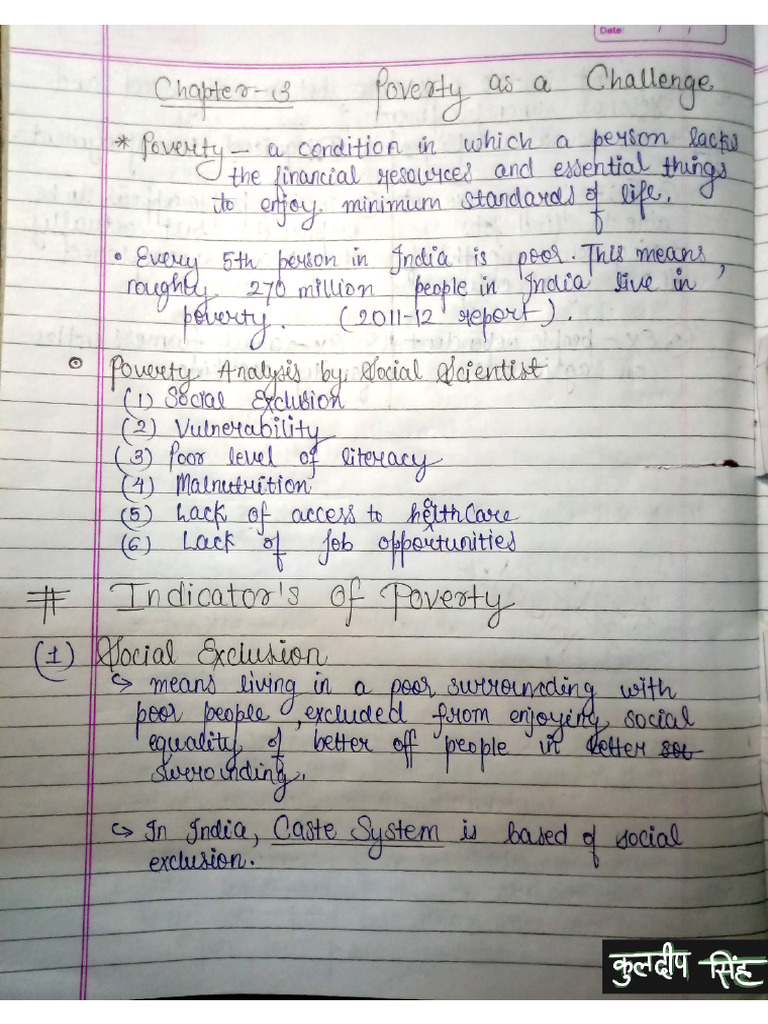 Date: / /
Chapter-3 Poverty as a Challenge
* Poverty - a condition in which a person lacks
the financial resources and essential things
to enjoy minimum standards of life.
• Every 5th person in India is poor. This means,
roughly 270 million people in India live in
poverty. (2011-12 report).
⊙ Poverty Analysis by Social Scientist
(1) Social Exclusion
(2) Vulnerability
(3) Poor level of literacy
(4) Malnutrition
(5) Lack of access to healthCare
(6) Lack of Job opportunities
# Indicator's of Poverty
(1) Social Exclusion
↪ means living in a poor surrounding with
poor people, excluded from enjoying social
equality of better off people in better
surrounding.
↪ In India, Caste System is based of social
exclusion.
कुलदीप सिंह